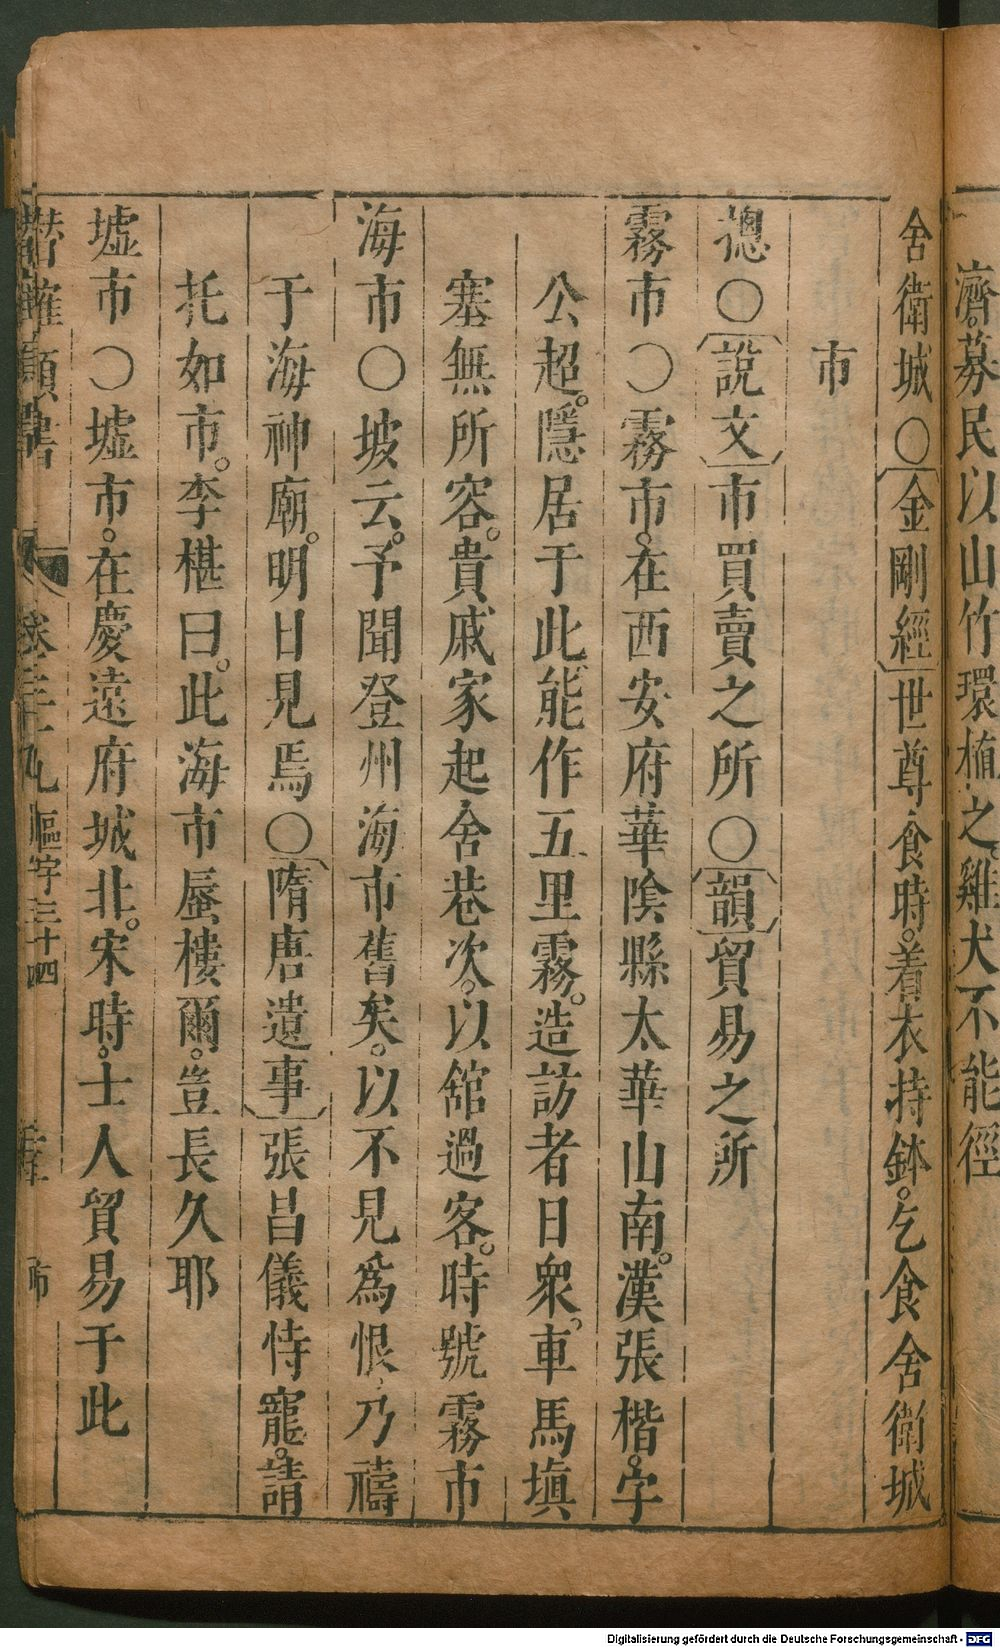 濟。募民以山竹環植之。雞犬不能徑
舍衛城○金剛經世尊食時。着衣持鉢。乞食舍衛城
市
總○說文市買賣之所○韻貿易之所
霧市○霧市。在西安府華陰縣太華山南。漢張楷。字
公超。隱居于此。能作五里霧。造訪者日衆。車馬塡
塞無所容。貴戚家起舍巷次。以舘過客。時號霧市
海市○坡云。予聞登州海市舊矣。以不見爲恨。乃禱
于海神廟。明日見焉○隋唐遺事張昌儀恃寵。請
托如市。李椹曰。此海市蜃樓爾。豈長久耶
墟市○墟市。在慶遠府城北。宋時。士人貿易于此
潛確類書 卷三十九 區字三十四 市
Digitalisierung gefördert durch die Deutsche Forschungsgemeinschaft - DFG